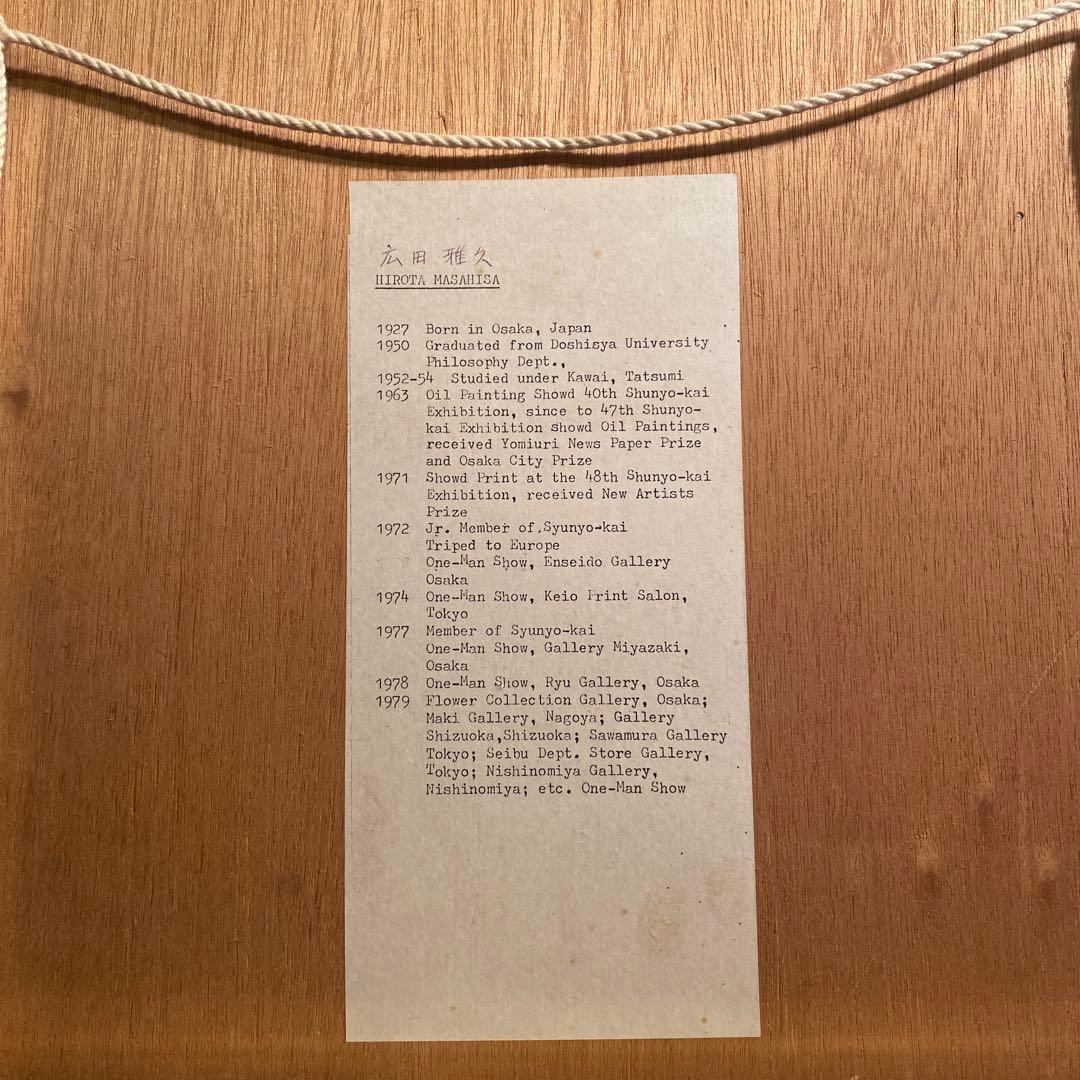 広田 雅久
HIROTA MASAHISA
1927 Born in Osaka, Japan
1950 Graduated from Doshisya University
Philosophy Dept.,
1952-54 Studied under Kawai, Tatsumi
1963 Oil Painting Showd 40th Shunyo-kai
Exhibition, since to 47th Shunyo-
kai Exhibition showd Oil Paintings,
received Yomiuri News Paper Prize
and Osaka City Prize
1971 Showd Print at the 48th Shunyo-kai
Exhibition, received New Artists
Prize
1972 Jr. Member of.Syunyo-kai
Triped to Europe
One-Man Show, Enseido Gallery
Osaka
1974 One-Man Show, Keio Print Salon,
Tokyo
1977 Member of Syunyo-kai
One-Man Show, Gallery Miyazaki,
Osaka
1978 One-Man Show, Ryu Gallery, Osaka
1979 Flower Collection Gallery, Osaka;
Maki Gallery, Nagoya; Gallery
Shizuoka,Shizuoka; Sawamura Gallery
Tokyo; Seibu Dept. Store Gallery,
Tokyo; Nishinomiya Gallery,
Nishinomiya; etc. One-Man Show